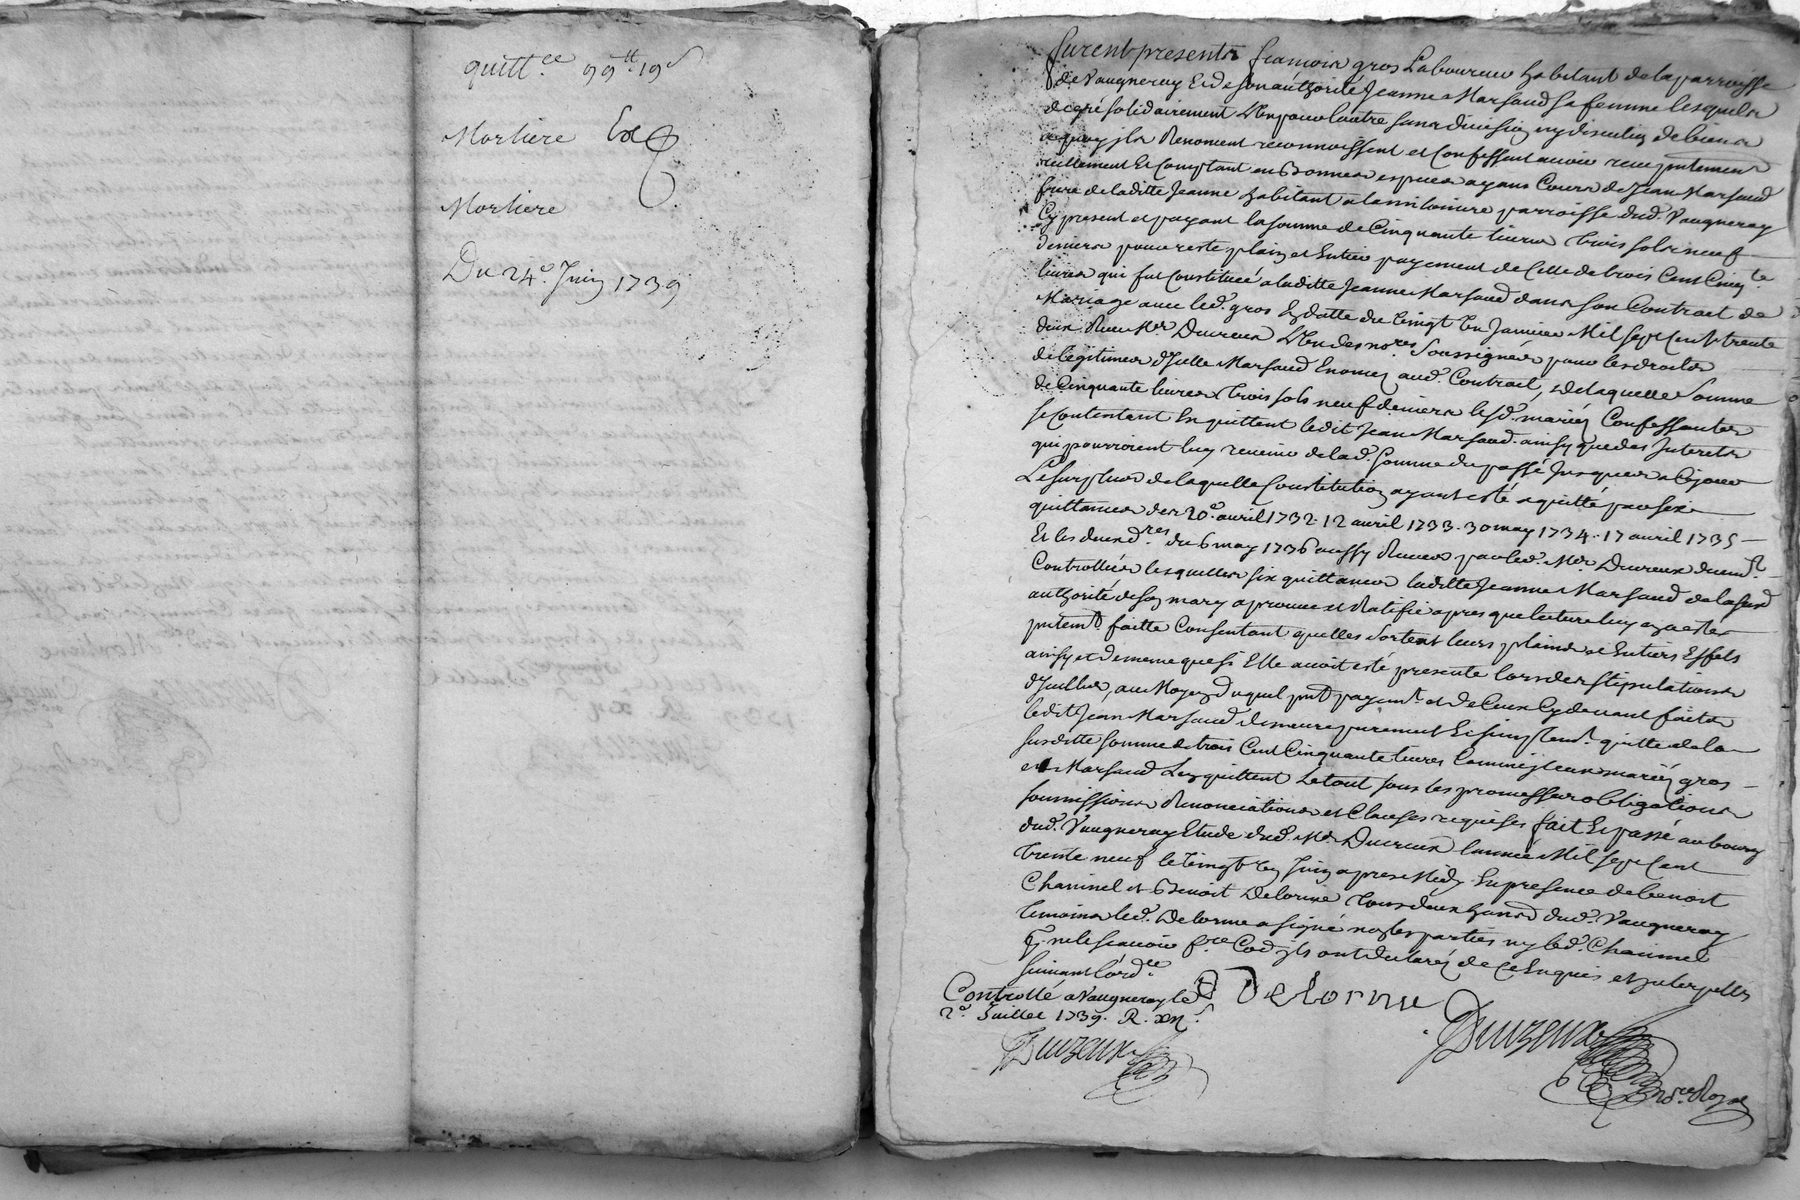 quitt.ce 99tt 19s
Morliere Ex
Morliere
Du 24e. Juin 1739
furent presents francois gros Laboureur habitant de la parroisse
de Vaugneray Et de son authorité Jeanne Marsaud sa femme lesquels
de gré solidairement L'un pour l'autre sans division ny discution de biens
a quoy ils Renoncent reconnoissent et Confessent avoir receu
reellement Et Comptant en Bonnes especes ayans Cours de Jean Marsaud
frere de laditte Jeanne habitant a la parroisse dud. Vaugneray
Cy present et payant la somme de Cinquante livres trois sols neuf
deniers pour reste plain et Entier payement de Celle de trois Cent Cinqte
livres qui fut Constituée a laditte Jeanne Marsaud dans son Contract de
Mariage avec led. gros En datte du vingt un Janvier Mil sept Cent trente
deux Receu Mer Ducreux L'un des nores soussignés pour les droits
de legitimes d'Icelle Marsaud Enoncés aud. Contract, de laquelle somme
de Cinquante livres trois sols neuf deniers lesd. mariés Confessants
se Contentant En quittent ledit Jean Marsaud ainsy que des Interets
qui pourroient luy revenir de lad. somme du passé Jusques a Cejour
Le surplus de laquelle Constitution ayant esté aquitté par six
quittances des 20e. avril 1732. 12 avril 1733. 30 may 1734. 17 avril 1735
Et les deux dres du 6 may 1736 aussy Receues par led. Mer Ducreux duemt
Controllées lesquelles six quittances laditte Jeanne Marsaud de lasusd
authorité de son mary aprouve et Ratifie apres que lecture luy en a esté
pntemt faitte Consentant quelles sortent leurs plains et Entiers Effets
ainsy et de meme que si Elle avoit esté presente lors des stipulations
d'Icelles, au Moyen duquel pnt payemt et de Ceux Cy devant faits
ledit Jean Marsaud demeure purement Et simplemt quitte de la
susditte somme de trois Cent Cinquante livres Comme Iceux mariés gros
et Marsaud L'en quittent Le tout sous les promesses obligations
soumissions Renonciations et Clauses requises fait Et passé au bourg
dud. Vaugneray Etude dud. Me Ducreux l'année Mil sept Cent
trente neuf le vingt un Juin apres Midy En presence de benoist
Chavinel et Benoit Delorme tous deux dud. Vaugneray
temoins led. Delorme a signé non les parties ny led. Chavinel
p. ne le scavoir fre Co􏰀􏰀 ils ont declaré de Ce Enquis et Interpellés
suivant l'ordce
Controllé a Vaugneray le
2e Juillet 1739. R. xiis
B Delorme
Ducreux
Ducreux
nore Royal